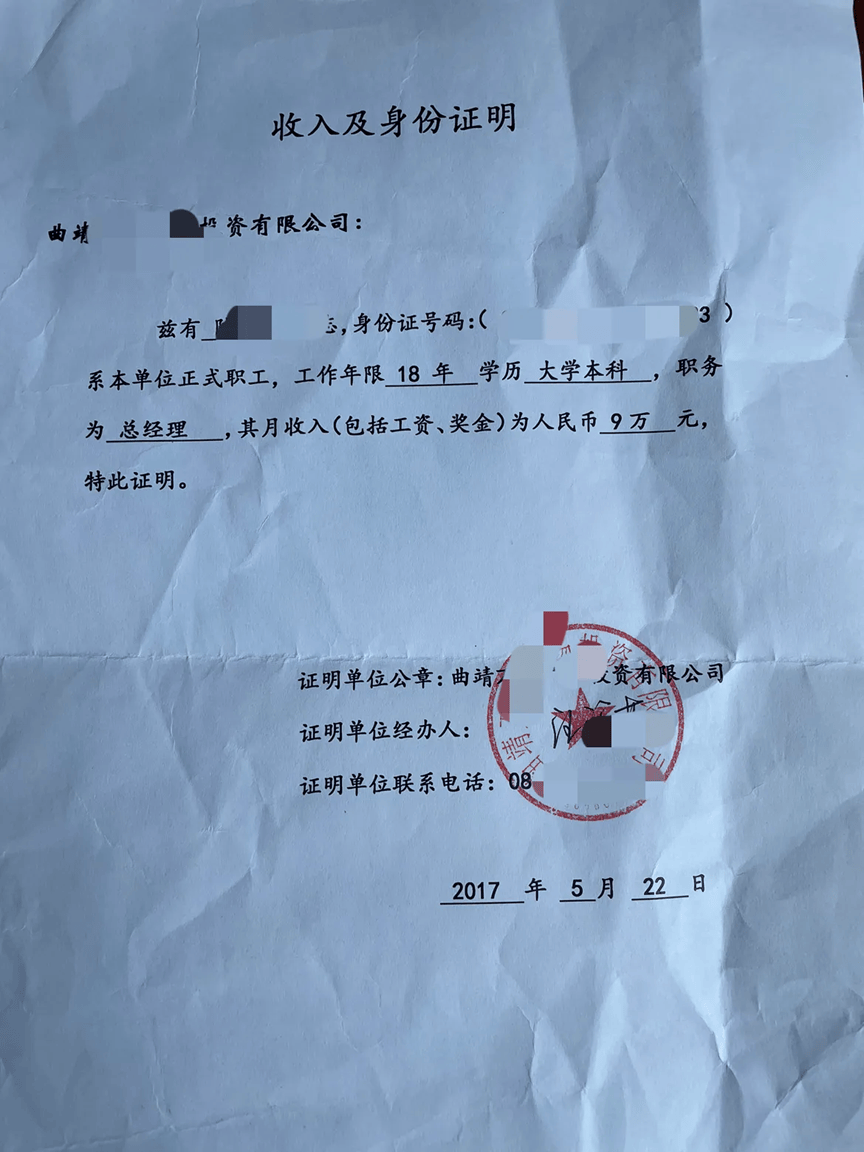 收入及身份证明
曲靖 投资有限公司：
兹有 志，身份证号码：( 3 )
系本单位正式职工，工作年限 18 年 学历 大学本科 ，职务
为 总经理 ，其月收入(包括工资、奖金)为人民币 9万 元，
特此证明。
证明单位公章：曲靖 投资有限公司
证明单位经办人：
证明单位联系电话：08
2017 年 5 月 22 日
靖 投资有限 司